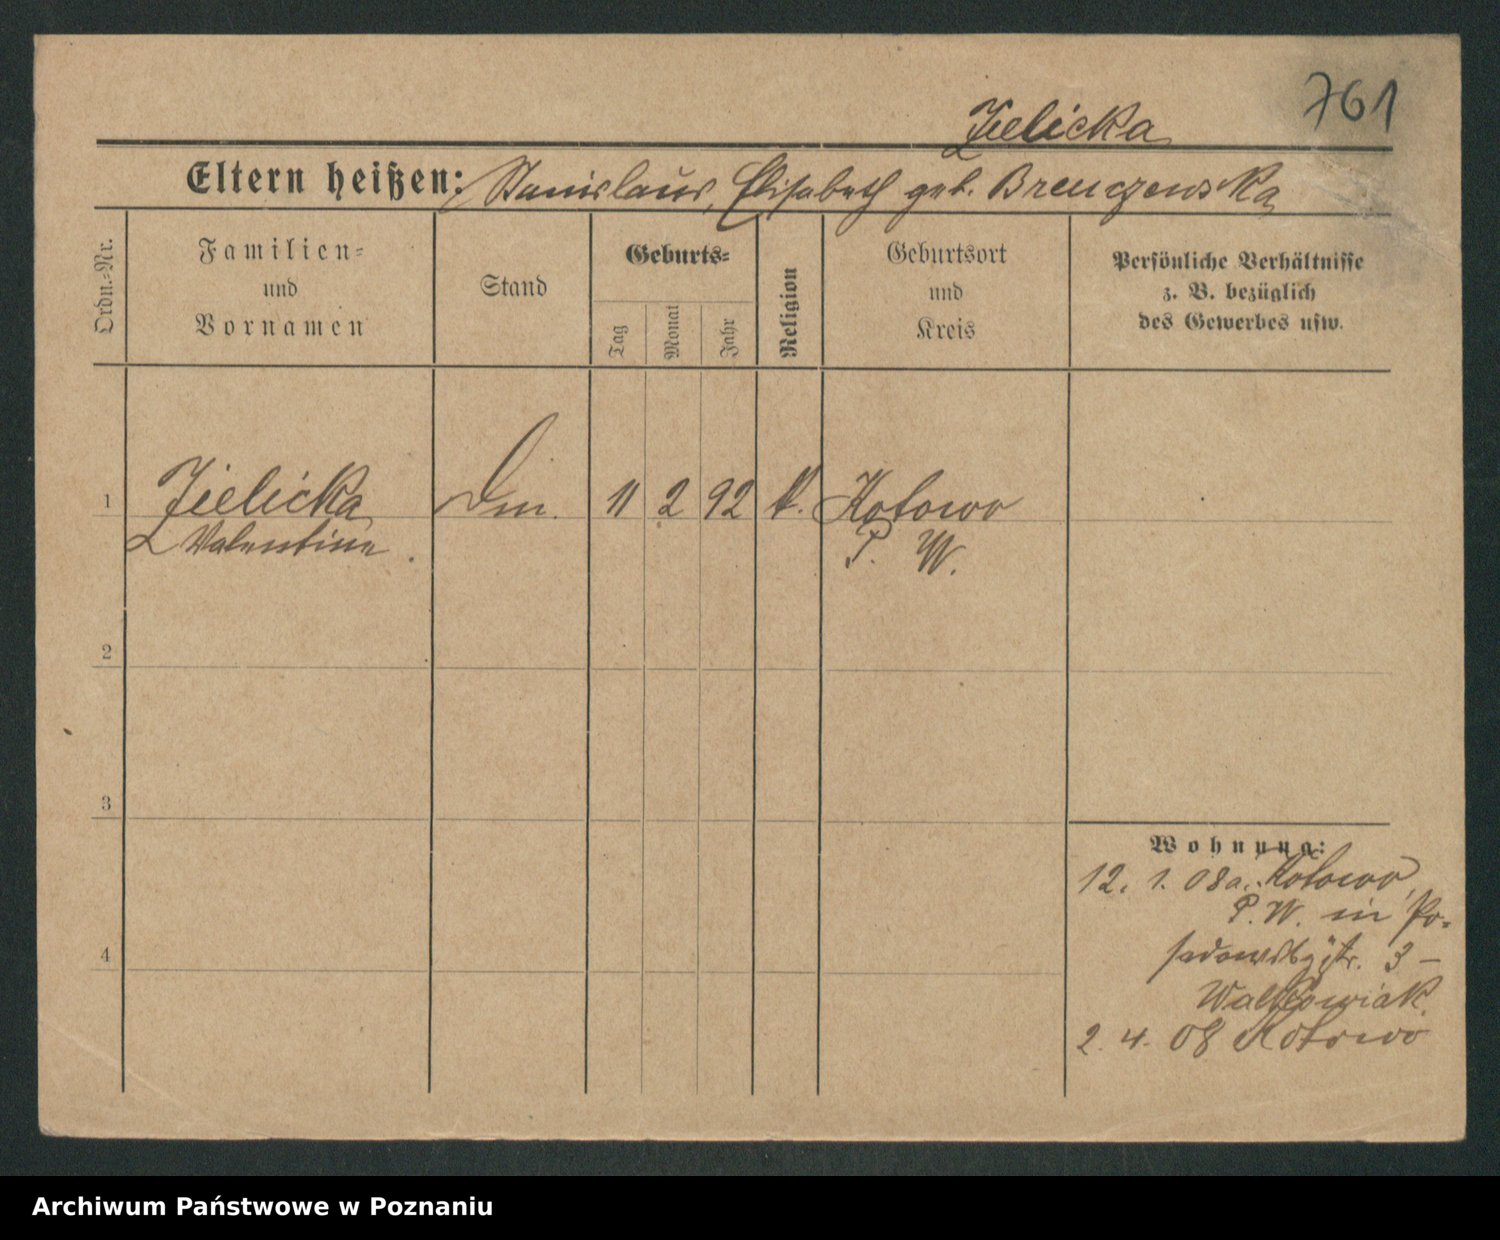 761
Zielicka
Eltern heißen: Stanislaus, Elisabeth geb. Brenczewska
Ordn.-Nr.
Familien-
und
Vornamen
Stand
Geburts-
Tag
Monat
Jahr
Religion
Geburtsort
und
Kreis
Persönliche Verhältnisse
z. B. bezüglich
des Gewerbes usw.
1
Zielicka
Valentine
11 2 92 k. Kotowo
P. W.
2
3
4
Wohnung:
12. 1. 08 a. Kotowo,
P. W. in Po-
str. 3 -
Walkowiak
2. 4. 08 Kotowo
Archiwum Państwowe w Poznaniu